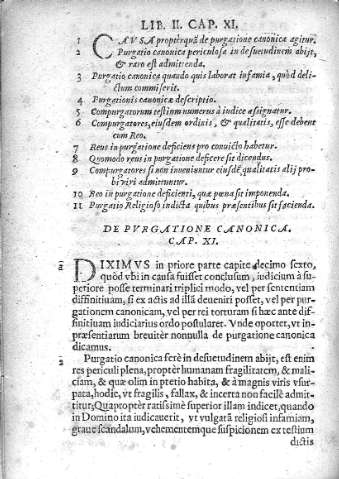 LIB. II. CAP. XI.
1 CAVSA propter quā de purgatione canonica agitur.
2 Purgatio canonica periculosa in desuetudinem abijt,
& raro est admittenda.
3 Purgatio canonica quando quis laborat infamia, quòd deli-
ctum commiserit.
4 Purgationis canonicæ descriptio.
5 Compurgatorum testium numerus à iudice assignatur.
6 Compurgatores, eiusdem ordinis, & qualitatis, esse debent
cum Reo.
7 Reus in purgatione deficiens pro conuicto habetur.
8 Quomodo reus in purgatione deficere sit dicendus.
9 Compurgatores si non inueniuntur eiusdē qualitatis alij pro-
bi viri admittuntur.
10 Reo in purgatione deficienti, quæ pœna sit imponenda.
11 Purgatio Religioso indicta quibus præsentibus sit facienda.
DE PVRGATIONE CANONICA.
CAP. XI.
DIXIMVS in priore parte capite decimo sexto,
quòd vbi in causa fuisset conclusum, iudicium à su-
periore posse terminari triplici modo, vel per sententiam
diffinitiuam, si ex actis ad illā deueniri posset, vel per pur-
gationem canonicam, vel per rei torturam si hæc ante dif-
finitiuam iudiciarius ordo postularet. Vnde oportet, vt in-
præsentiarum breuitèr nonnulla de purgatione canonica
dicamus.
2 Purgatio canonica ferè in desuetudinem abijt, est enim
res periculi plena, proptèr humanam fragilitatem, & mali-
ciam, & quæ olim in pretio habita, & à magnis viris vsur-
pata, hodie, vt fragilis, fallax, & incerta non facilè admit-
titur; Quapropter ratissimè superior illam indicet, quando
in Domino ita iudicauerit, vt vulgatā religiosi infamiam,
graue scandalum, vehementemque suspicionem ex testium
dictis